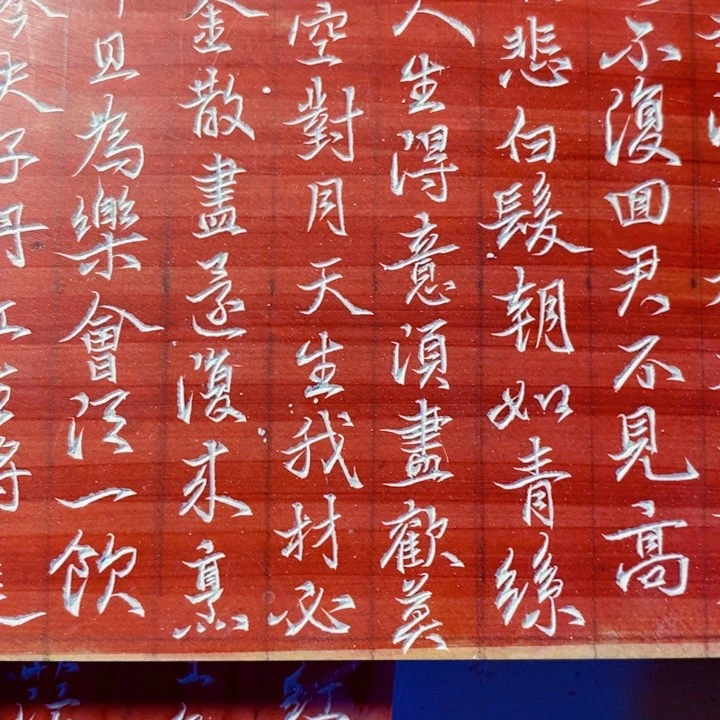 不復回君不見高
悲白髮朝如青絲
人生得意須盡歡莫
空對月天生我材必
金散盡還復來烹
且為樂會須一飲
夫子丹丘生將